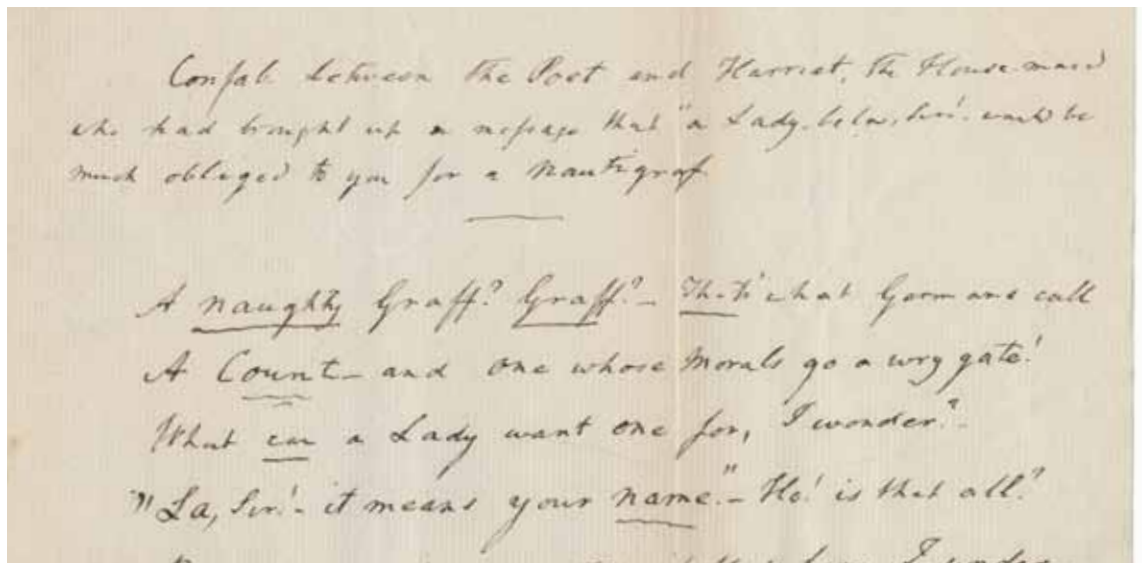 Confab between the Poet and Harriet, the House-maid
who had brought up a message that "a Lady, below, Sir! would be
much obliged to you for a Nautigraf
A naughty Graff? Graff?— That's what Germans call
A Count— and one whose morals go a wry gate!
What can a Lady want one for, I wonder?—
"La, Sir!— it means your name."— Ho! is that all?